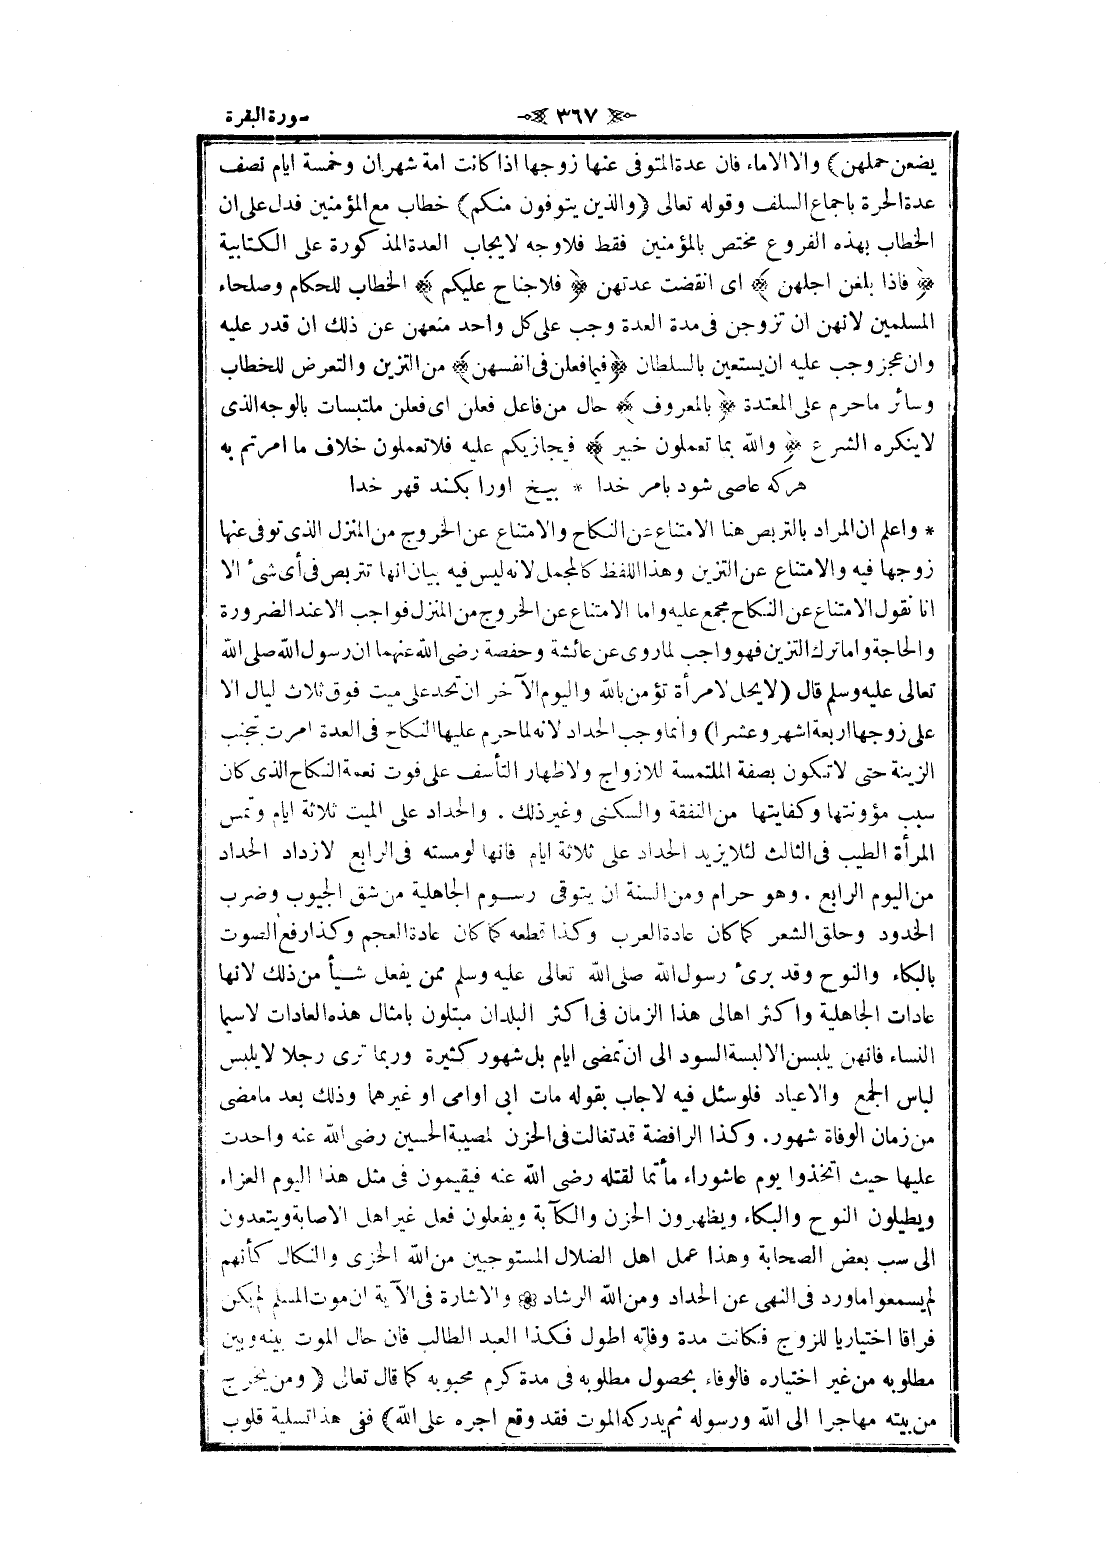 سورة البقرة ٣٦٧
يضعن حملهن) والا الاماء فان عدة المتوفى عنها زوجها اذا كانت امة شهران وخمسة ايام نصف
عدة الحرة باجماع السلف وقوله تعالى (والذين يتوفون منكم) خطاب مع المؤمنين فدل على ان
الخطاب بهذه الفروع مختص بالمؤمنين فقط فلا وجه لايجاب العدة المذكورة على الكتابية
﴿ فاذا بلغن اجلهن ﴾ اى انقضت عدتهن ﴿ فلا جناح عليكم ﴾ الخطاب للحكام وصلحاء
المسلمين لانهن ان تزوجن فى مدة العدة وجب على كل واحد منعهن عن ذلك ان قدر عليه
وان عجز وجب عليه ان يستعين بالسلطان ﴿ فيما فعلن فى انفسهن ﴾ من التزين والتعرض للخطاب
وسائر ما حرم على المعتدة ﴿ بالمعروف ﴾ حال من فاعل فعلن اى فعلن ملتبسات بالوجه الذى
لا ينكره الشرع ﴿ والله بما تعملون خبير ﴾ فيجازيكم عليه فلا تعملون خلاف ما امرتم به
هركه عاصى شود بامر خدا * بيخ اورا بكند قهر خدا
* واعلم ان المراد بالتربص هنا الامتناع عن النكاح والامتناع عن الخروج من المنزل الذى توفى عنها
زوجها فيه والامتناع عن التزين وهذا اللفظ كالمجمل لانه ليس فيه بيان انها تتربص فى أى شىء الا
انا نقول الامتناع عن النكاح مجمع عليه واما الامتناع عن الخروج من المنزل فواجب الا عند الضرورة
والحاجة واما ترك التزين فهو واجب لما روى عن عائشة وحفصة رضى الله عنهما ان رسول الله صلى الله
تعالى عليه وسلم قال (لا يحل لامرأة تؤمن بالله واليوم الآخر ان تحد على ميت فوق ثلاث ليال الا
على زوجها اربعة اشهر وعشرا) وانما وجب الحداد لانه لما حرم عليها النكاح فى العدة امرت بتجنب
الزينة حتى لا تكون بصفة الملتمسة للازواج ولاظهار التأسف على فوت نعمة النكاح الذى كان
سبب مؤونتها وكفايتها من النفقة والسكنى وغير ذلك . والحداد على الميت ثلاثة ايام وتمس
المرأة الطيب فى الثالث لئلا يزيد الحداد على ثلاثة ايام فانها لو مسته فى الرابع لازداد الحداد
من اليوم الرابع . وهو حرام ومن السنة ان يتوقى رسوم الجاهلية من شق الجيوب وضرب
الخدود وحلق الشعر كما كان عادة العرب وكذا قطعه كما كان عادة العجم وكذا رفع الصوت
بالبكاء والنوح وقد برئ رسول الله صلى الله تعالى عليه وسلم ممن يفعل شيأ من ذلك لانها
عادات الجاهلية واكثر اهالى هذا الزمان فى اكثر البلدان مبتلون بامثال هذه العادات لاسيما
النساء فانهن يلبسن الالبسة السود الى ان تمضى ايام بل شهور كثيرة وربما ترى رجلا لا يلبس
لباس الجمع والاعياد فلو سئل فيه لاجاب بقوله مات ابى او امى او غيرهما وذلك بعد ما مضى
من زمان الوفاة شهور . وكذا الرافضة قد تغالت فى الحزن لمصيبة الحسين رضى الله عنه واحدت
عليها حيث اتخذوا يوم عاشوراء مأتما لقتله رضى الله عنه فيقيمون فى مثل هذا اليوم العزاء
ويطيلون النوح والبكاء ويظهرون الحزن والكآبة ويفعلون فعل غير اهل الاصابة ويتعدون
الى سب بعض الصحابة وهذا عمل اهل الضلال المستوجبين من الله الخزى والنكال كأنهم
لم يسمعوا ما ورد فى النهى عن الحداد ومن الله الرشاد ۞ والاشارة فى الآية ان موت المسلم لم يكن
فراقا اختياريا للزوج فكانت مدة وفاته اطول فكذا العبد الطالب فان حال الموت بينه وبين
مطلوبه من غير اختياره فالوفاء بحصول مطلوبه فى مدة كرم محبوبه كما قال تعالى ( ومن يخرج
من بيته مهاجرا الى الله ورسوله ثم يدركه الموت فقد وقع اجره على الله) ففى هذا تسلية قلوب